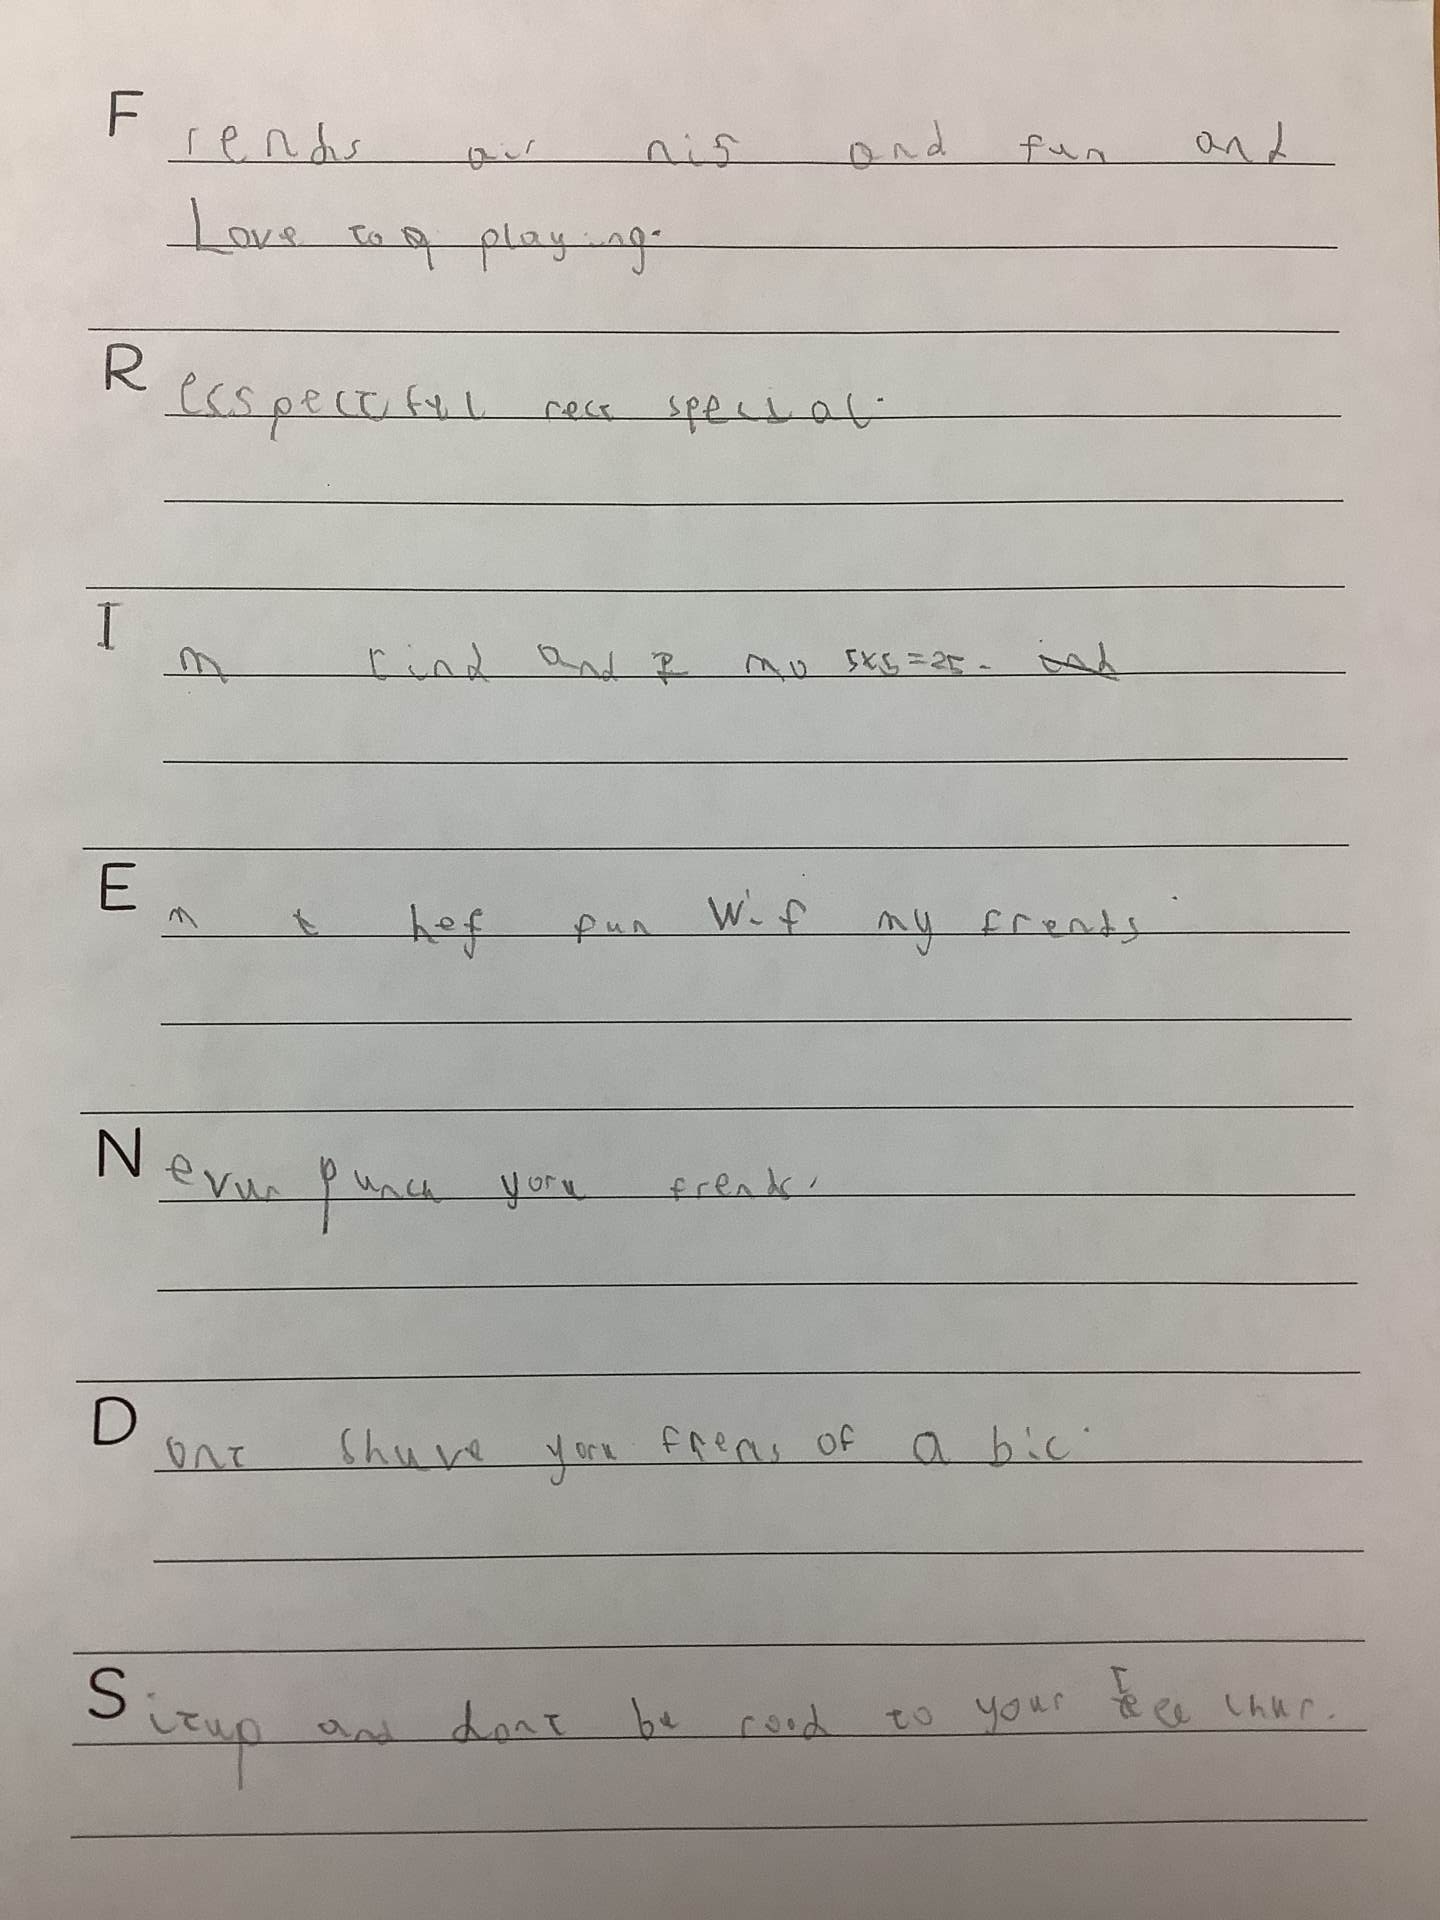 Frends air nis and fun and
Love to playing.
Resspectful speisal.
Im cind and I no 5x5=25.
En hef fun Wif my frends
Nevur punch your frends.
Dont shuve your frens of a bic.
Situp and dont be rood to your tee chur.